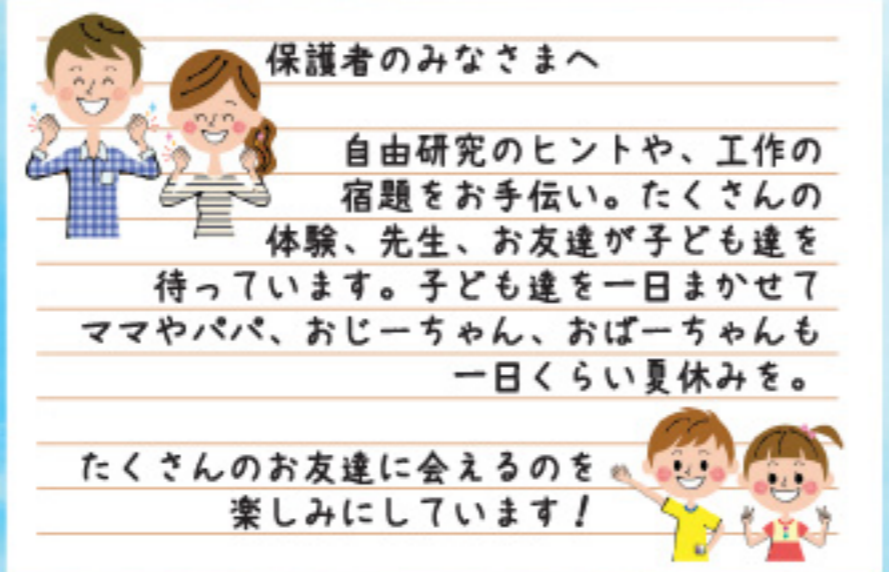 保護者のみなさまへ
自由研究のヒントや、工作の
宿題をお手伝い。たくさんの
体験、先生、お友達が子ども達を
待っています。子ども達を一日まかせて
ママやパパ、おじーちゃん、おばーちゃんも
一日くらい夏休みを。
たくさんのお友達に会えるのを
楽しみにしています！